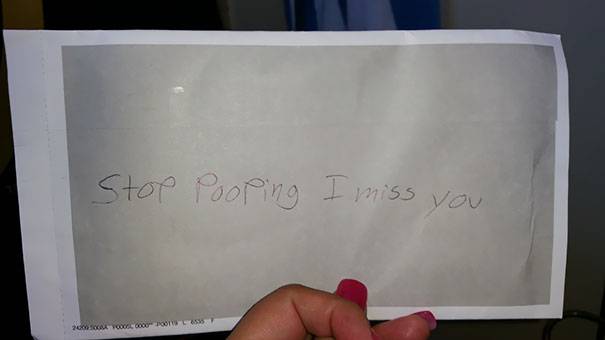 Stop Pooping I miss you
24209 5008A P0005L 0000 P00119 L 6535 F